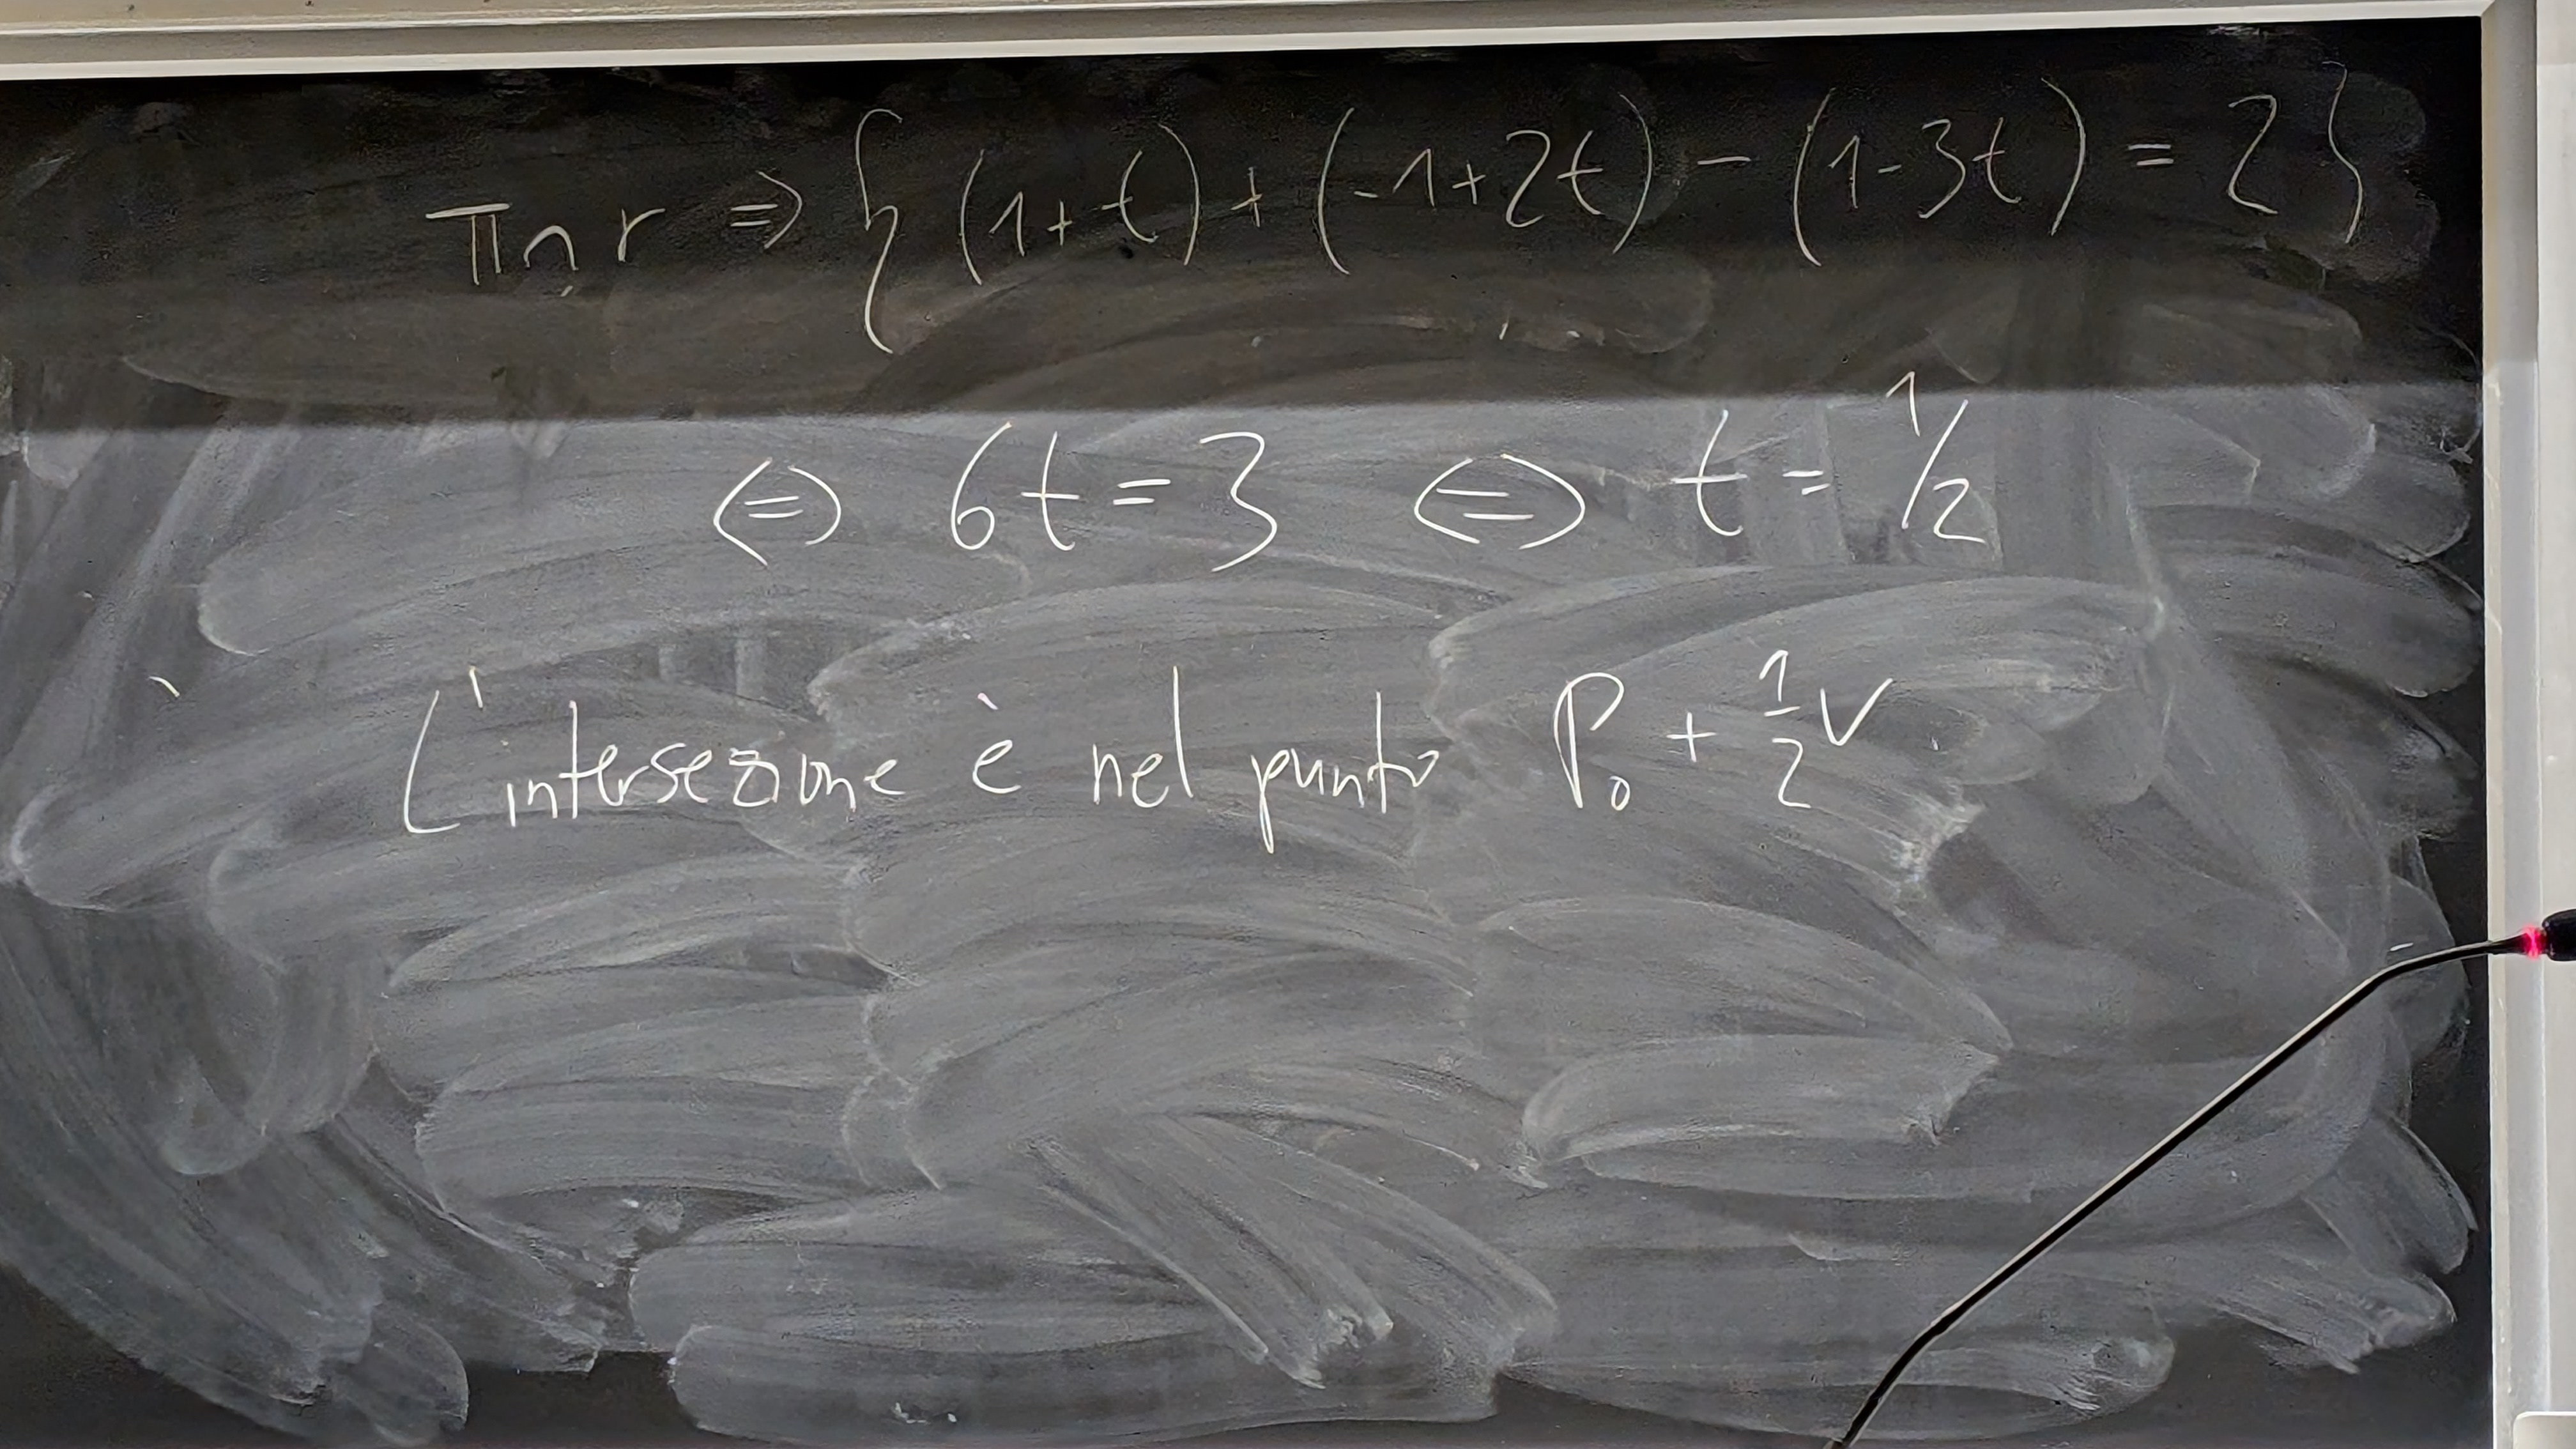 π ∩ r ⇒ { (1+t) + (-1+2t) - (1-3t) = 2 }
⇔ 6t = 3 ⇔ t = 1/2
L'intersezione è nel punto P₀ + 1/2 v